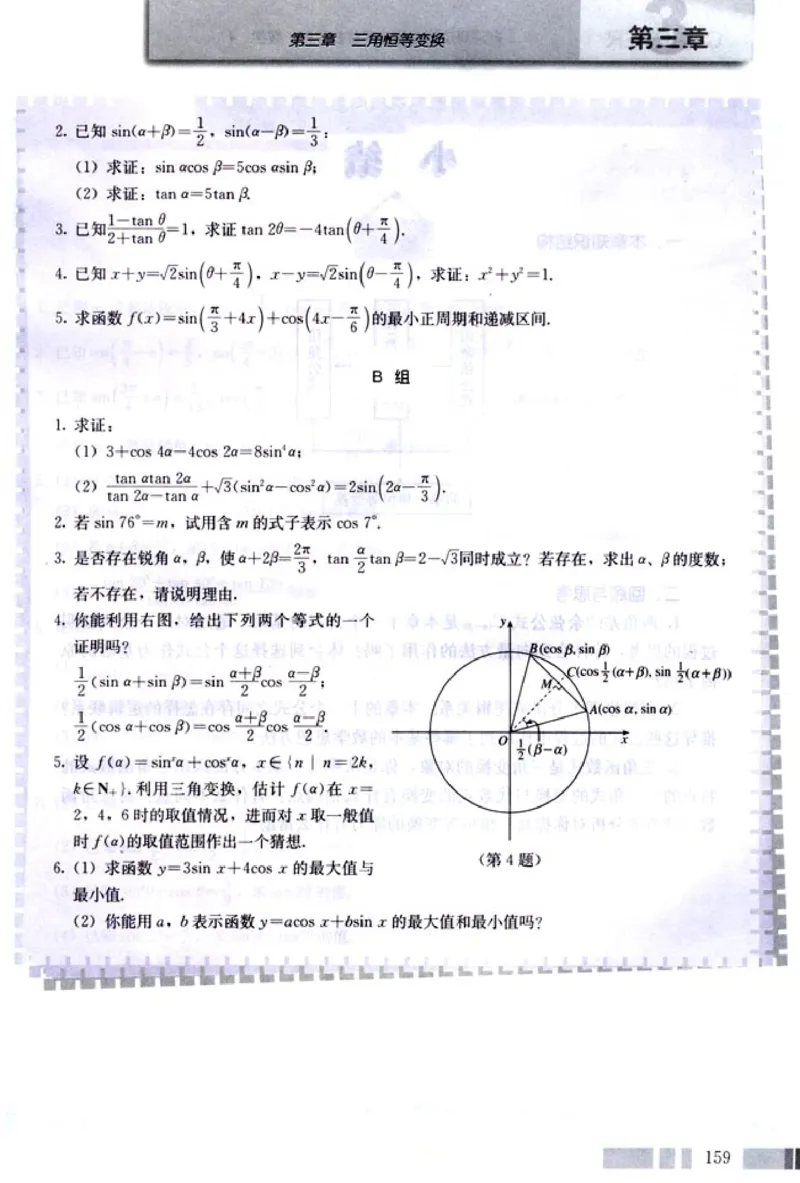 第三章 三角恒等变换
第三章
2. 已知 sin(α+β)=1/2, sin(α-β)=1/3:
(1) 求证: sin αcos β=5cos αsin β;
(2) 求证: tan α=5tan β.
3. 已知(1-tan θ)/(2+tan θ)=1, 求证 tan 2θ=-4tan(θ+π/4).
4. 已知 x+y=√2sin(θ+π/4), x-y=√2sin(θ-π/4), 求证: x²+y²=1.
5. 求函数 f(x)=sin(π/3+4x)+cos(4x-π/6)的最小正周期和递减区间.
B 组
1. 求证:
(1) 3+cos 4α-4cos 2α=8sin⁴α;
(2) (tan αtan 2α)/(tan 2α-tan α)+√3(sin²α-cos²α)=2sin(2α-π/3).
2. 若 sin 76°=m, 试用含 m 的式子表示 cos 7°.
3. 是否存在锐角 α, β, 使 α+2β=2π/3, tan α/2 tan β=2-√3同时成立? 若存在, 求出 α、β的度数;
若不存在, 请说明理由.
4. 你能利用右图, 给出下列两个等式的一个
证明吗?
1/2(sin α+sin β)=sin (α+β)/2 cos (α-β)/2;
1/2(cos α+cos β)=cos (α+β)/2 cos (α-β)/2.
y
B(cos β, sin β)
C(cos 1/2(α+β), sin 1/2(α+β))
M
A(cos α, sin α)
O
x
1/2(β-α)
(第 4 题)
5. 设 f(α)=sinˣα+cosˣα, x∈{n | n=2k,
k∈N₊}. 利用三角变换, 估计 f(α)在 x=
2, 4, 6 时的取值情况, 进而对 x 取一般值
时 f(α)的取值范围作出一个猜想.
6. (1) 求函数 y=3sin x+4cos x 的最大值与
最小值.
(2) 你能用 a, b 表示函数 y=acos x+bsin x 的最大值和最小值吗?
159